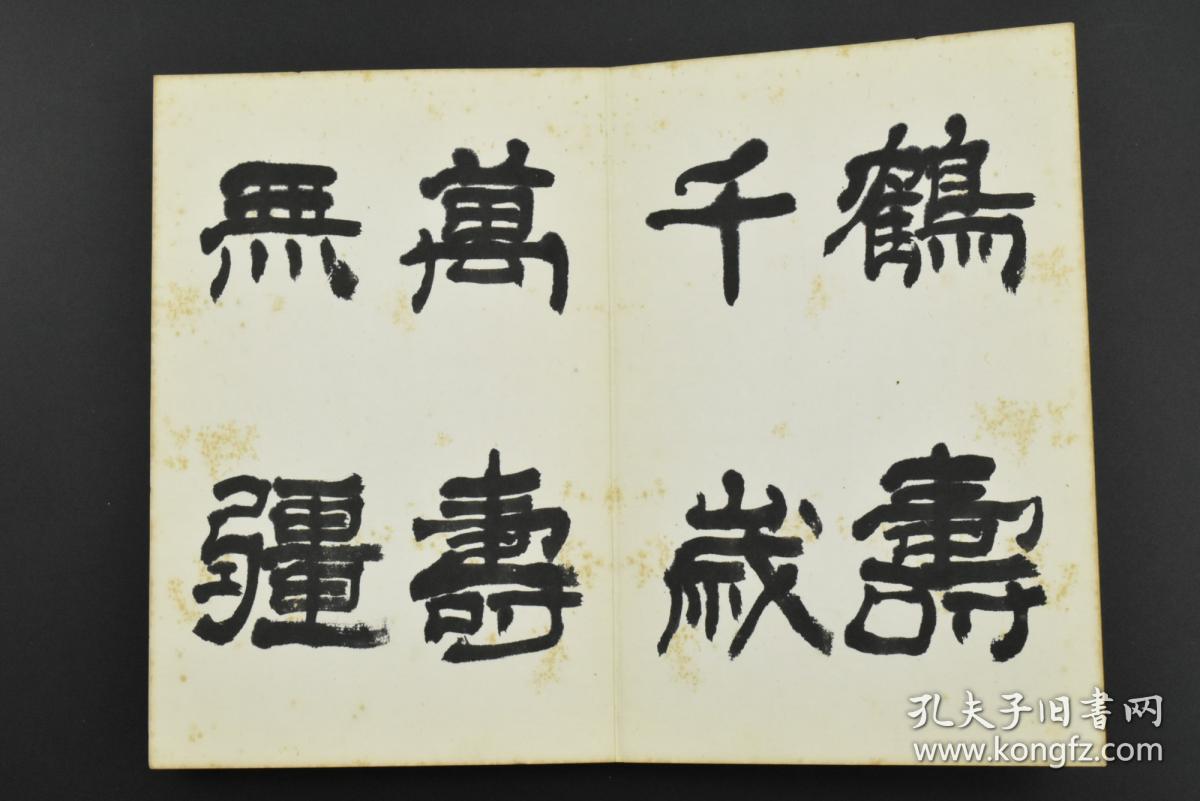 鶴壽
千歳
萬壽
無疆
孔夫子旧書网
www.kongfz.com